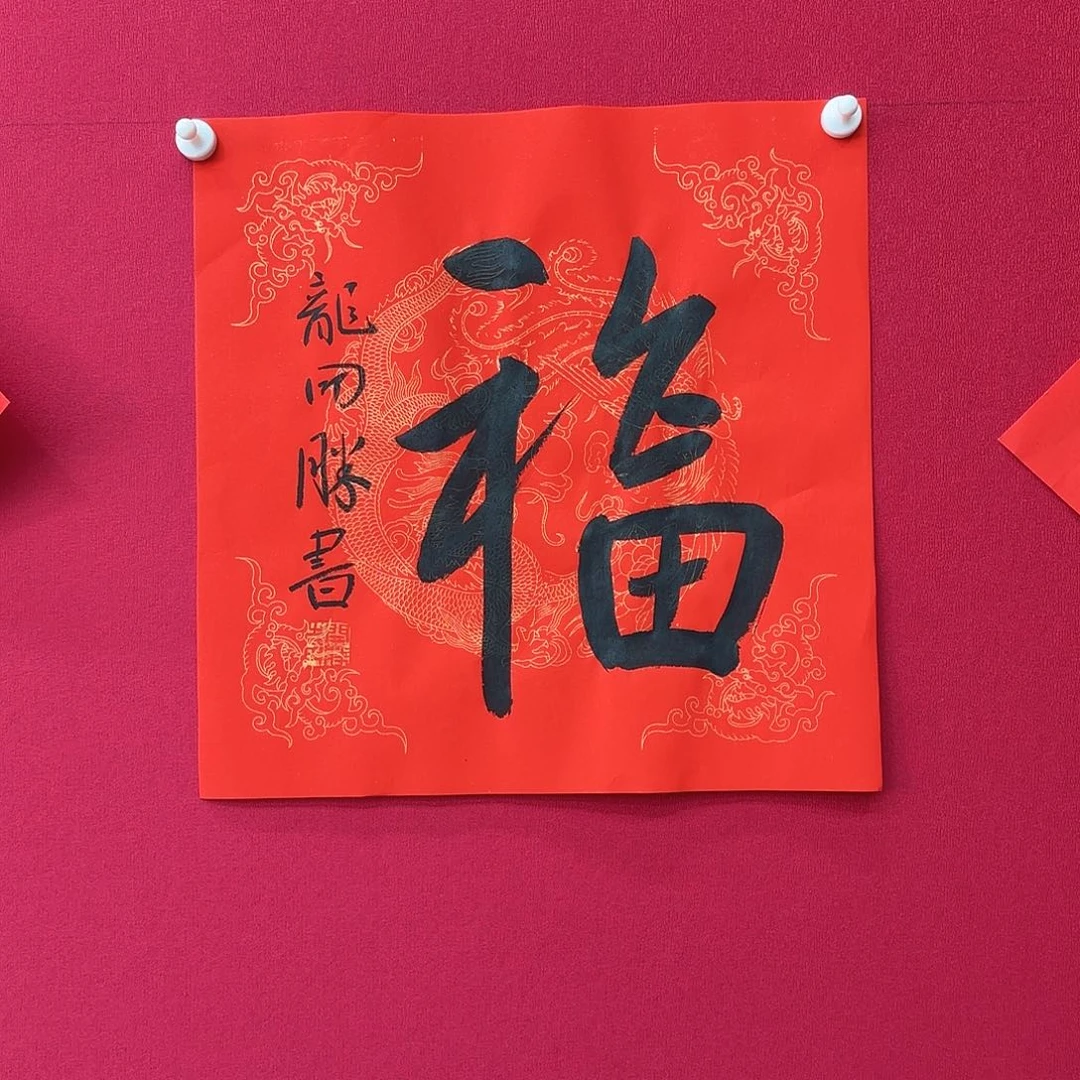 福
龍田勝書